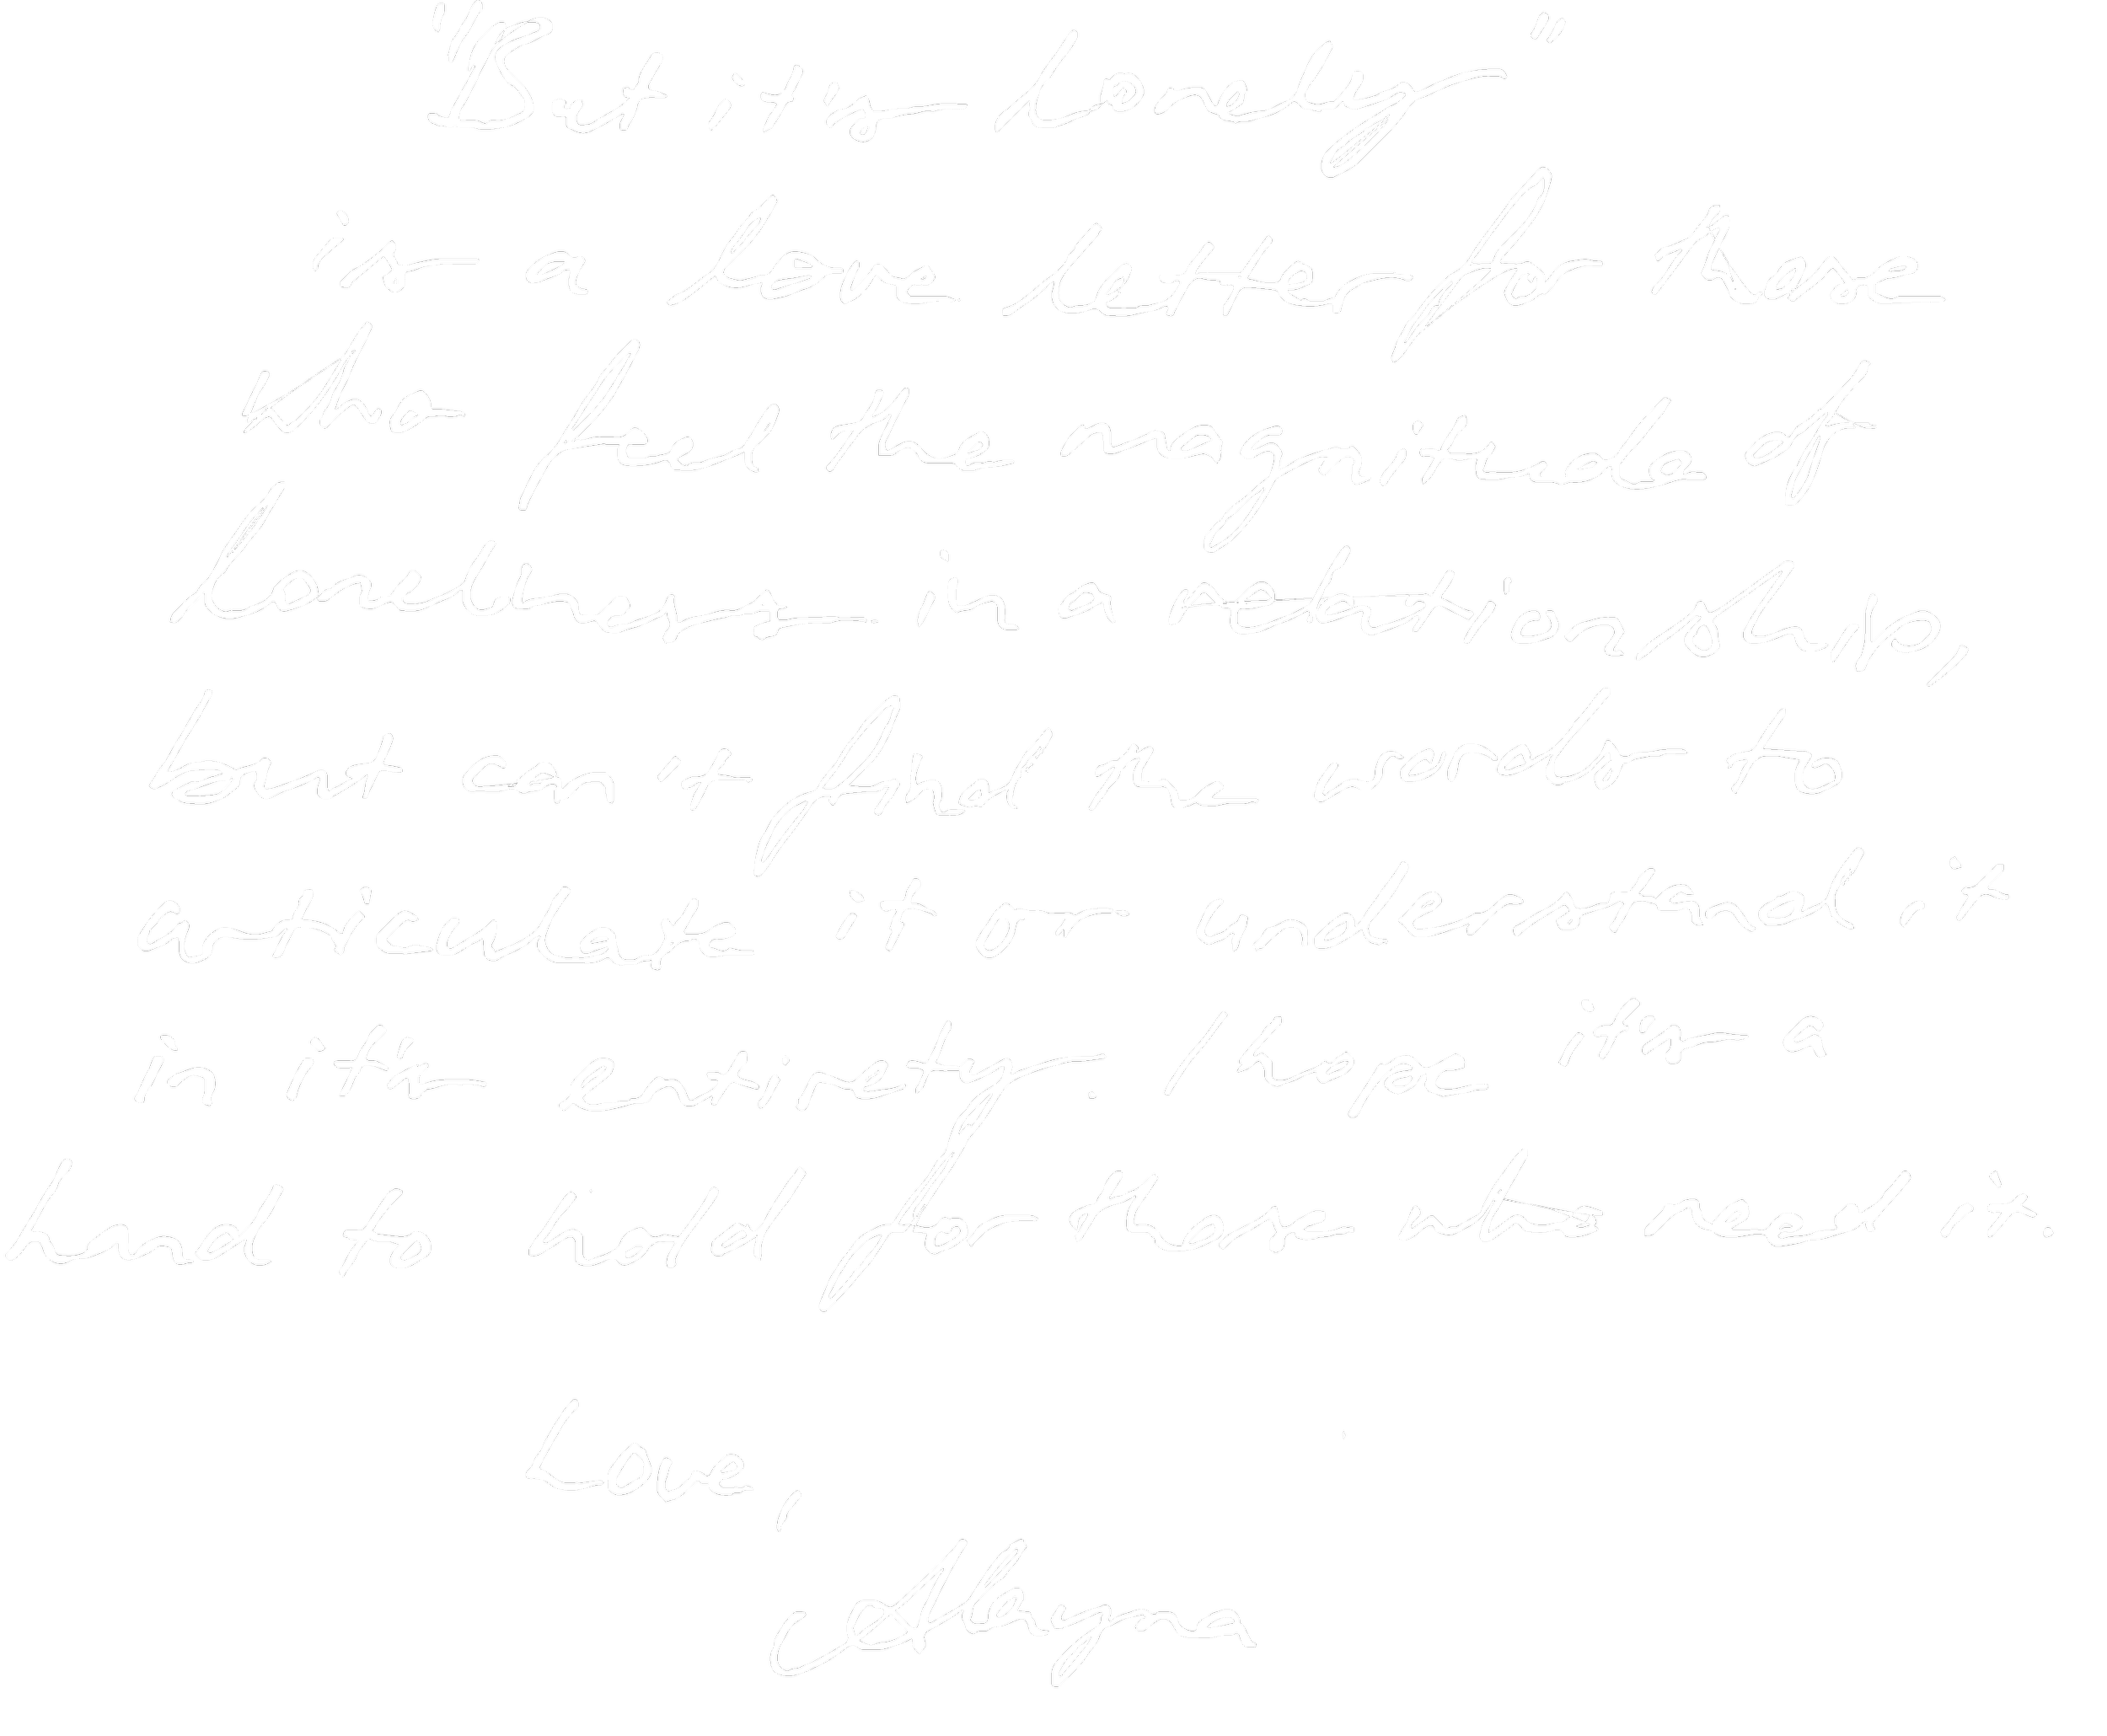 "But it's Lonely"
is a love letter for those
who feel the magnitude of
loneliness in a relationship,
but can't find the words to
articulate it or understand it
in it's entirety. I hope it's a
hand to hold for those who need it.
Love,
Alayna